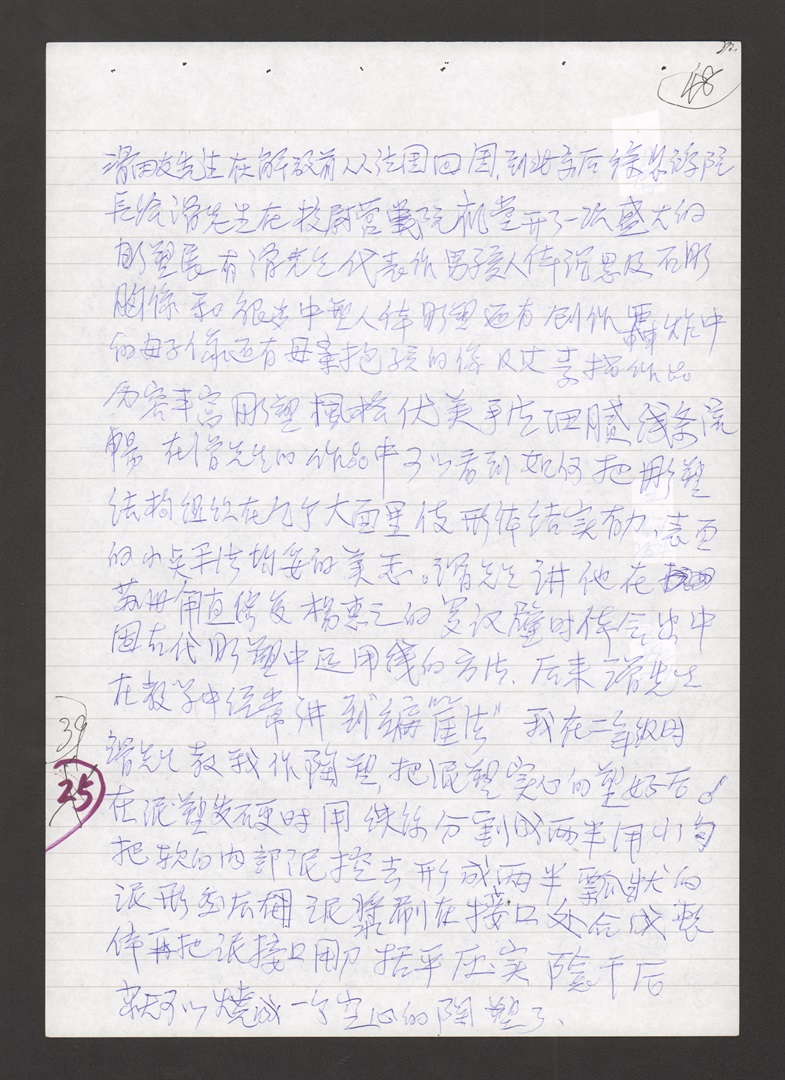 48
滑田友先生在解放前从法国回国,到北京后徐悲鸿院
长给滑先生在校尉营美院礼堂开了一次盛大的
雕塑展有滑先生代表作男孩人体沉思及石雕
胸像和很多中型人体雕塑还有创作轰炸中
的母子像还有母亲抱孩的像及丈
内容丰富雕塑风格优美手法细腻线条流
畅 在滑先生的作品中可以看到如何把雕塑
结构组织在几个大面里使形体结实有力、表面
的小手法均妥的美态。滑先生讲他在
苏州甪直修复杨惠之的罗汉壁时体会出中
国古代雕塑中运用线的方法.后来滑先生
在教学中经常讲到"编筐法" 我在二年级时
滑先生教我作陶塑,把泥塑实心的塑好后
在泥塑发硬时用铁丝分割成两半用小勺
把软的内部泥挖去形成两半瓢状的
泥形然后用泥浆刷在接口处合成整
体再把泥接口用刀括平压实 阴干后
就可以烧成一个空心的陶塑了、
39
25